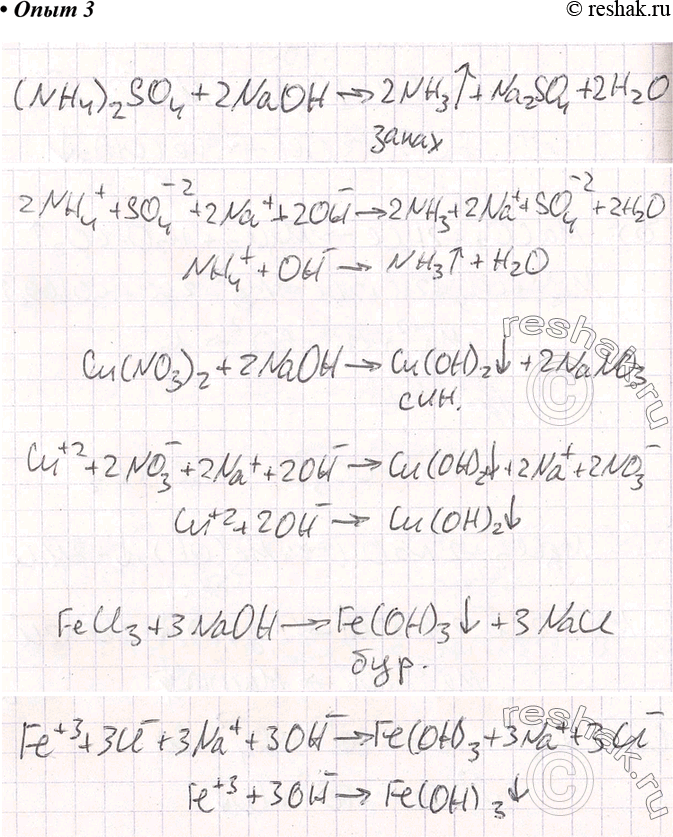 • Опыт 3
© reshak.ru
(NH₄)₂SO₄ + 2NaOH → 2NH₃↑ + Na₂SO₄ + 2H₂O
запах
2NH₄⁺ + SO₄⁻² + 2Na⁺ + 2OH⁻ → 2NH₃ + 2Na⁺ + SO₄⁻² + 2H₂O
NH₄⁺ + OH⁻ → NH₃↑ + H₂O
Cu(NO₃)₂ + 2NaOH → Cu(OH)₂↓ + 2NaNO₃
син.
Cu⁺² + 2NO₃⁻ + 2Na⁺ + 2OH⁻ → Cu(OH)₂↓ + 2Na⁺ + 2NO₃⁻
Cu⁺² + 2OH⁻ → Cu(OH)₂↓
FeCl₃ + 3NaOH → Fe(OH)₃↓ + 3NaCl
бур.
Fe⁺³ + 3Cl⁻ + 3Na⁺ + 3OH⁻ → Fe(OH)₃ + 3Na⁺ + 3Cl⁻
Fe⁺³ + 3OH⁻ → Fe(OH)₃↓
reshak.ru
©
reshak.ru
©